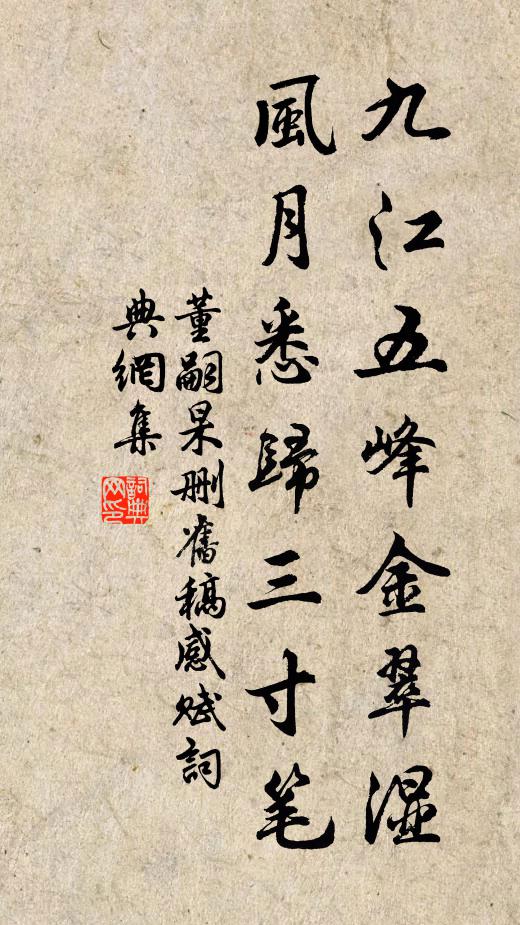 九江五峰金翠濕
風月悉歸三寸笔
董嗣杲刪舊稿感賦詞
典網集
詞典网印